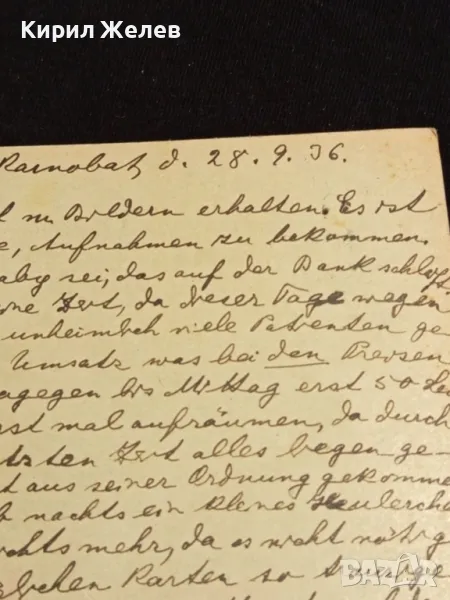 Кирил Желев
Karnobat, d. 28. 9. 36.
f m Bildern erhalten. Es ist
e, Aufnahmen zu bekommen.
aby sei, das auf der Bank schläft
ine Zeit, da dieser Tage wegen
unheimlich viele Patienten ge-
Umsatz was bei den Preisen
agegen bis Mittag erst 50 Le
rst mal aufräumen, da durch
tzten Zeit alles liegen ge-
t aus seiner Ordnung gekomme
b nachts ein kleines
chts mehr, da es nicht nötig
lichen Karten so
bazar